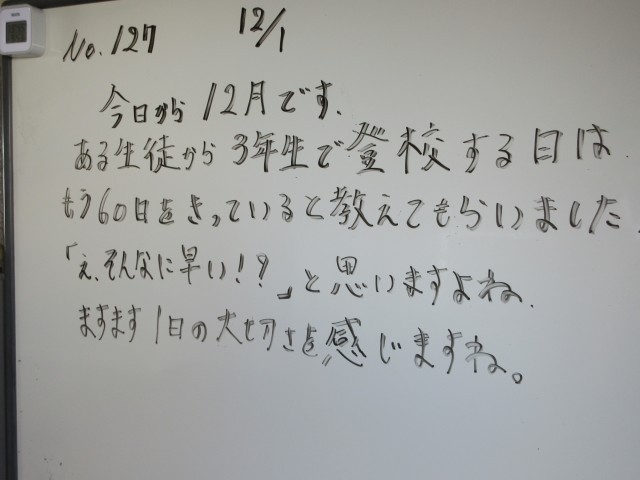 No.127 12/1
今日から12月です.
ある生徒から3年生で登校する日は
もう60日をきっていると教えてもらいました.
「え、そんなに早い!?」と思いますよね.
ますます1日の大切さを感じますね。